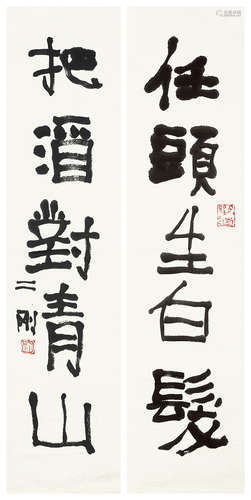 任頭生白髮
把酒對青山
二刚